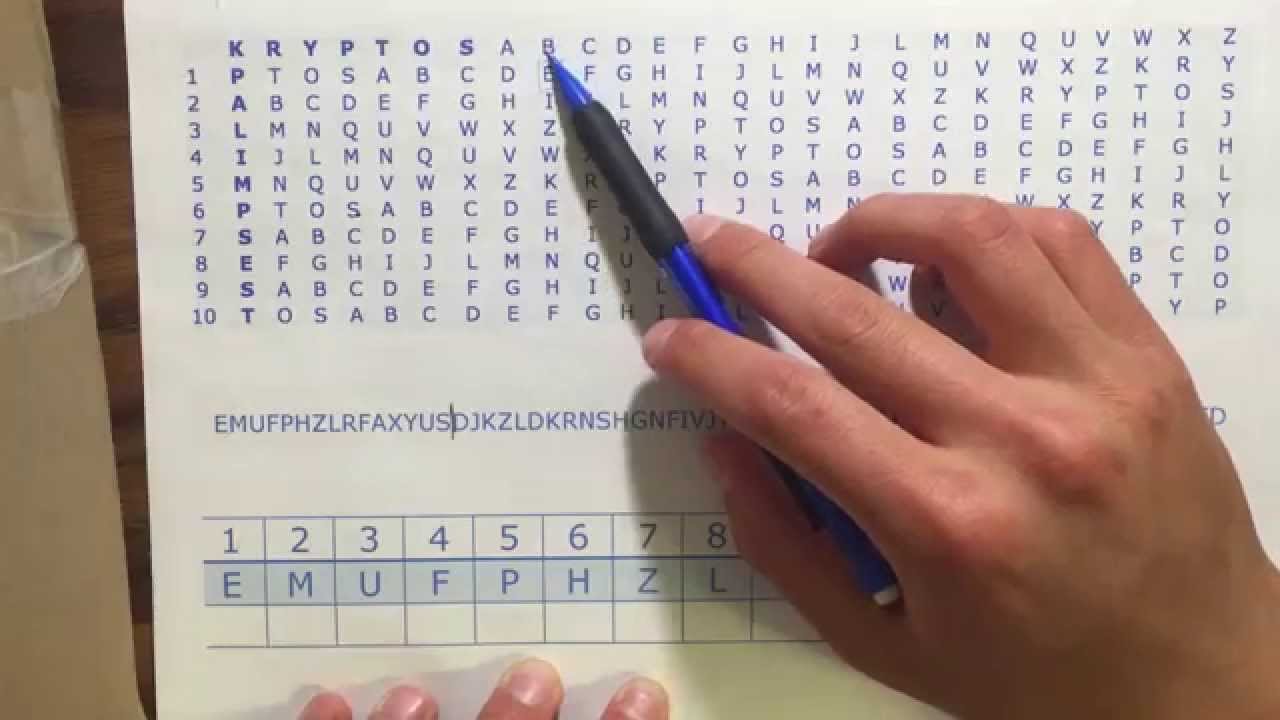 K R Y P T O S A B C D E F G H I J L M N Q U V W X Z
1 P T O S A B C D E F G H I J L M N Q U V W X Z K R Y
2 A B C D E F G H I L M N Q U V W X Z K R Y P T O S
3 L M N Q U V W X Z R Y P T O S A B C D E F G H I J
4 I J L M N Q U V W X K R Y P T O S A B C D E F G H
5 M N Q U V W X Z K R P T O S A B C D E F G H I J L
6 P T O S A B C D E F I J L M N W X Z K R Y
7 S A B C D E F G H I J Q U Y P T O
8 E F G H I J L M N Q U B C D
9 S A B C D E F G H I J L W P T O
10 T O S A B C D E F G H I L V Y P
EMUFPHZLRFAXYUSDJKZLDKRNSHGNFIVJ D
1 2 3 4 5 6 7 8
E M U F P H Z L